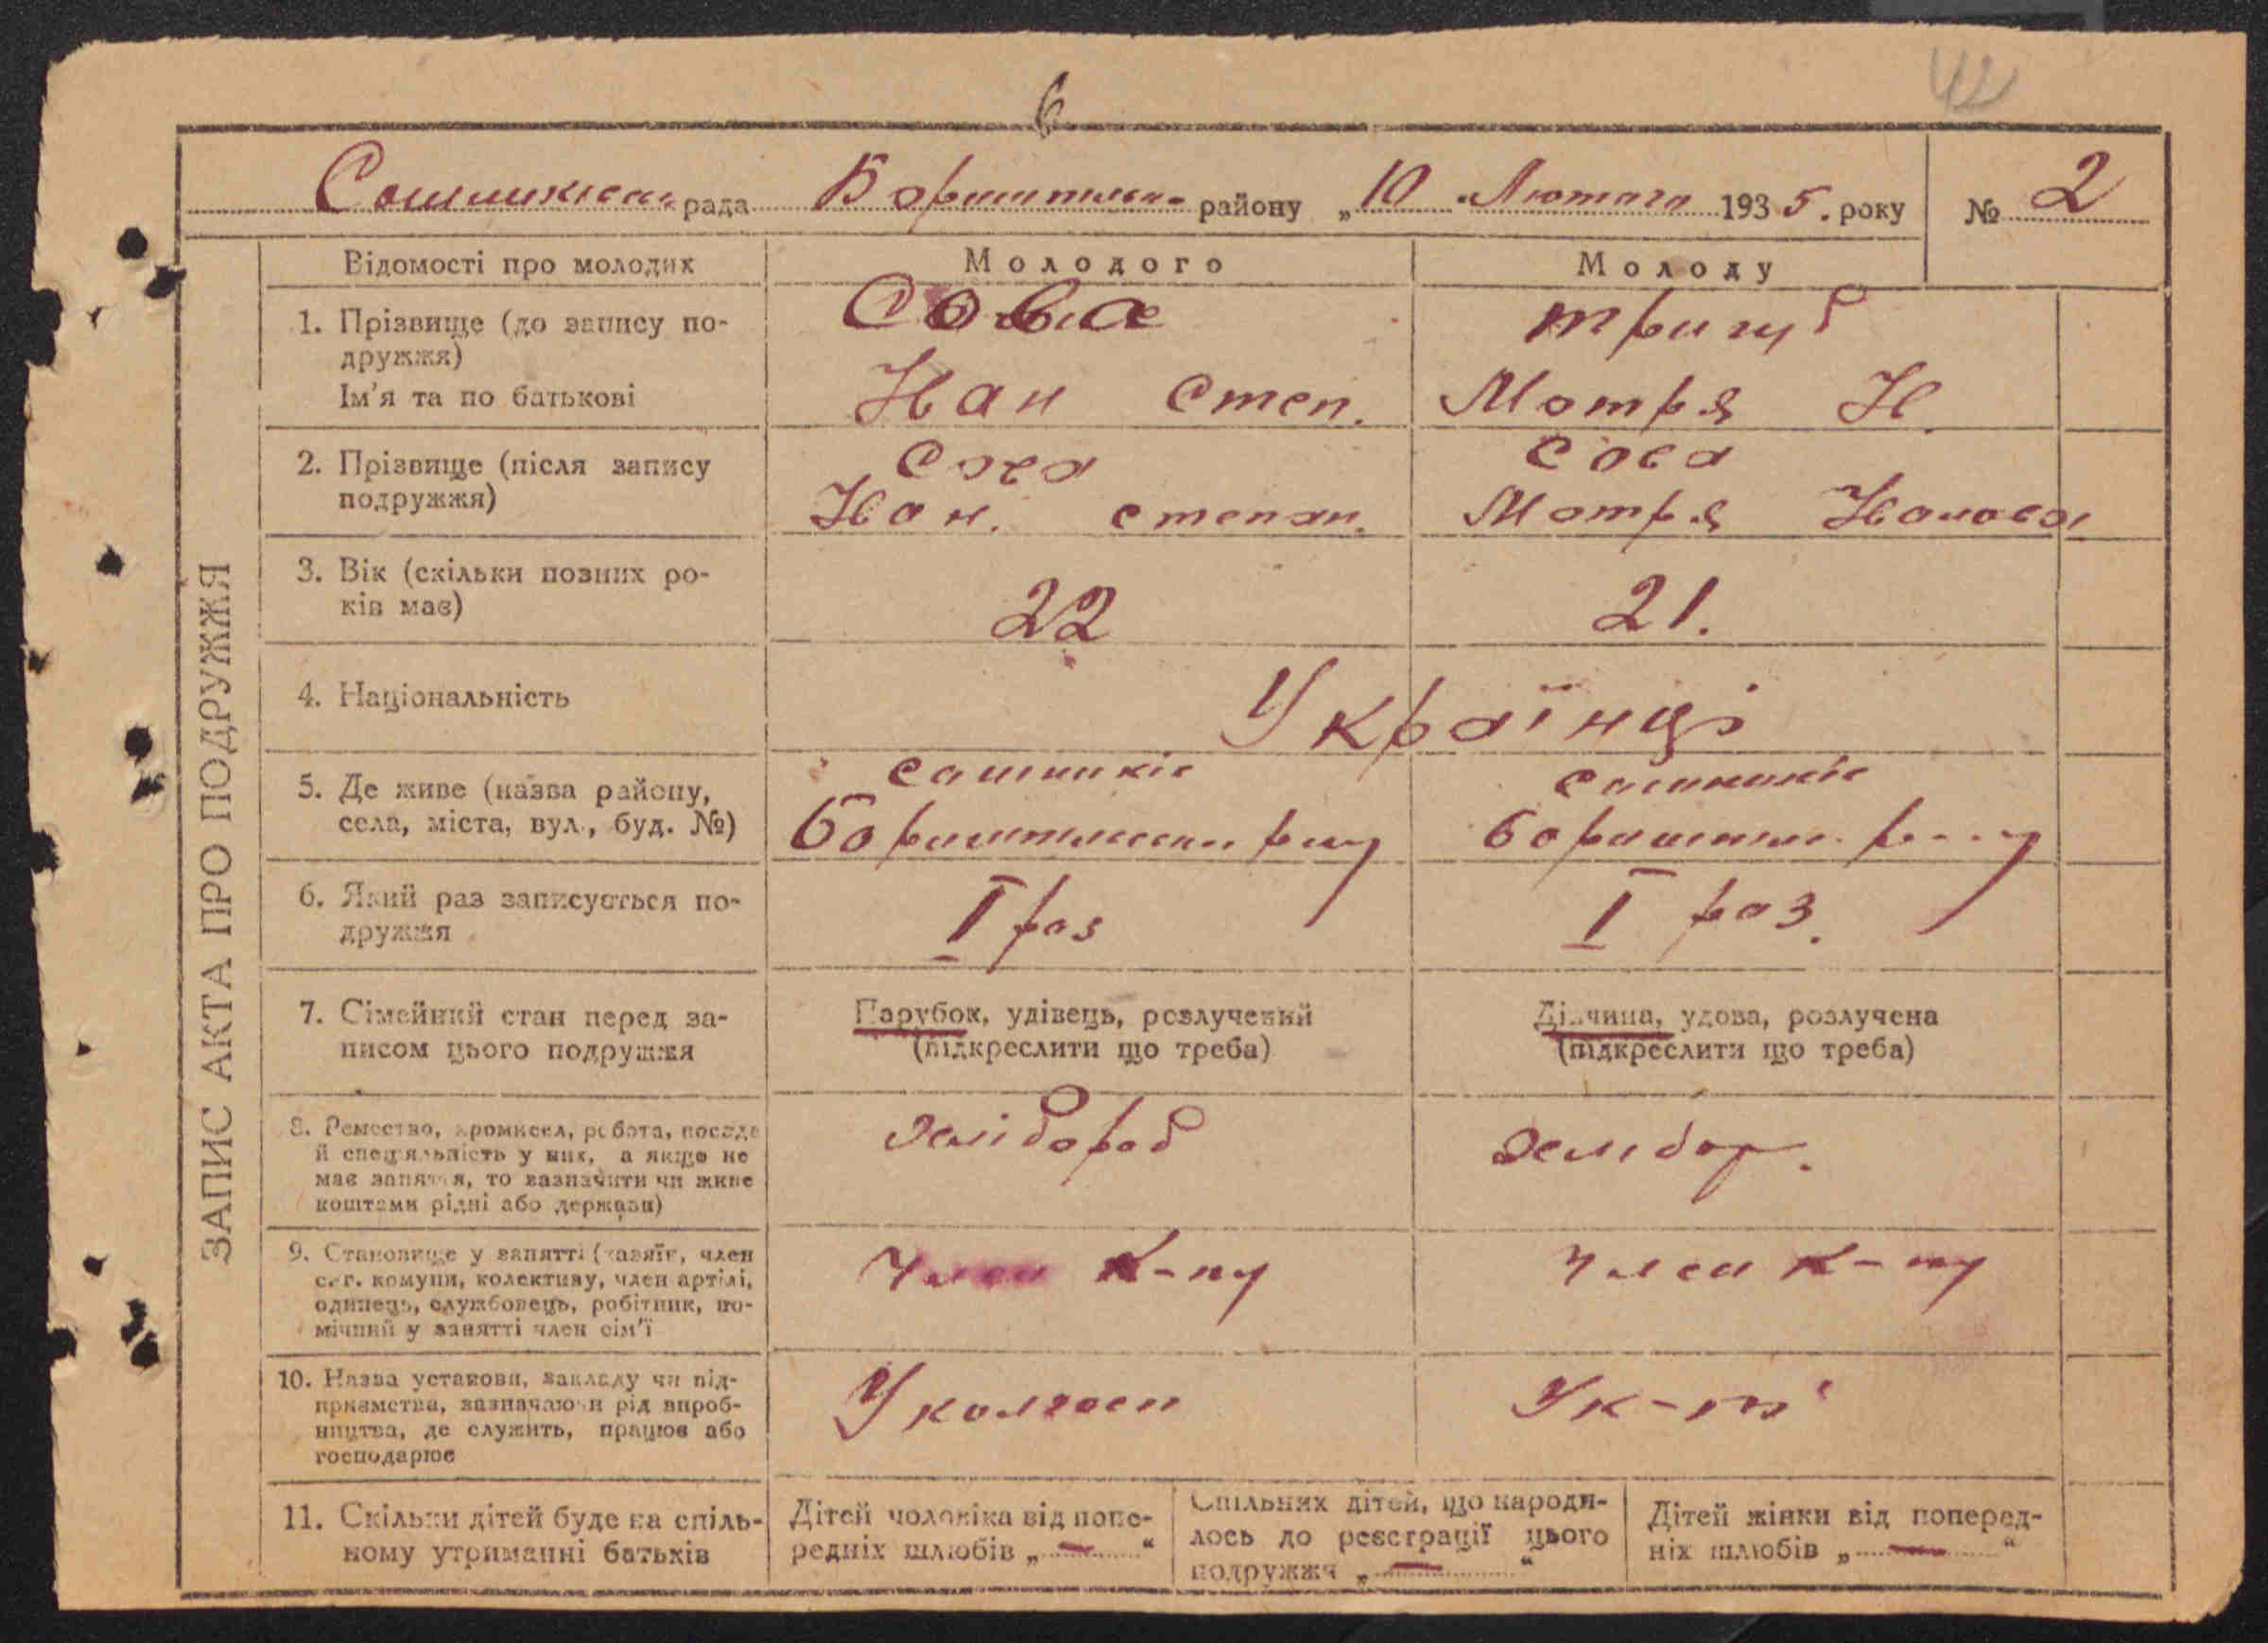 6
42
Сошниківська рада Бориспільськ. району „10" Лютого 1935. року № 2
ЗАПИС АКТА ПРО ПОДРУЖЖЯ
Відомості про молодих
Молодого
Молоду
1. Прізвище (до запису по-
дружжя)
Ім'я та по батькові
Сова
Іван Степ.
Тригуб
Мотря І.
2. Прізвище (після запису
подружжя)
Сова
Іван. степан.
Сова
Мотря
3. Вік (скільки повних ро-
ків має)
22
21.
4. Національність
Українці
5. Де живе (назва району,
села, міста, вул., буд. №)
сошників
сошників
6. Який раз записується по-
дружжя
I раз
I раз.
7. Сімейний стан перед за-
писом цього подружжя
Парубок, удівець, розлучений
(підкреслити що треба)
Дівчина, удова, розлучена
(підкреслити що треба)
8. Ремество, промисел, робота, посада
й спеціяльність у них, а якщо не
має заняття, то зазначити чи живе
коштами рідні або держави)
хлібороб
хлібор.
9. Становище у занятті (хазяїн, член
с.-г. комуни, колективу, член артілі,
одинець, службовець, робітник, по-
мічний у занятті член сім'ї
Член к-пу
Член к-пу
10. Назва установи, закладу чи під-
приємства, зазначаючи рід вироб-
ництва, де служить, працює або
господарює
У колгосп
У к-пі
11. Скільки дітей буде на спіль-
ному утриманні батьків
Дітей чоловіка від попе-
редніх шлюбів „ — "
Спільних дітей, що народи-
лось до реєстрації цього
подружжя „ — "
Дітей жінки від поперед-
ніх шлюбів „ — "